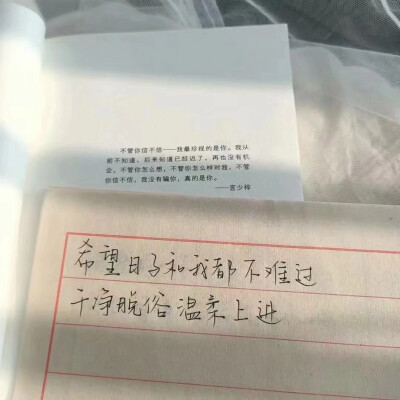 不管你信不信——我最珍视的是你。我从
前不知道，后来知道已经迟了，再也没有机
会。不管你怎么想，不管你怎么样对我，不管
你信不信，我没有骗你，真的是你。
——言少梓
希望日子和我都不难过
干净脱俗 温柔上进